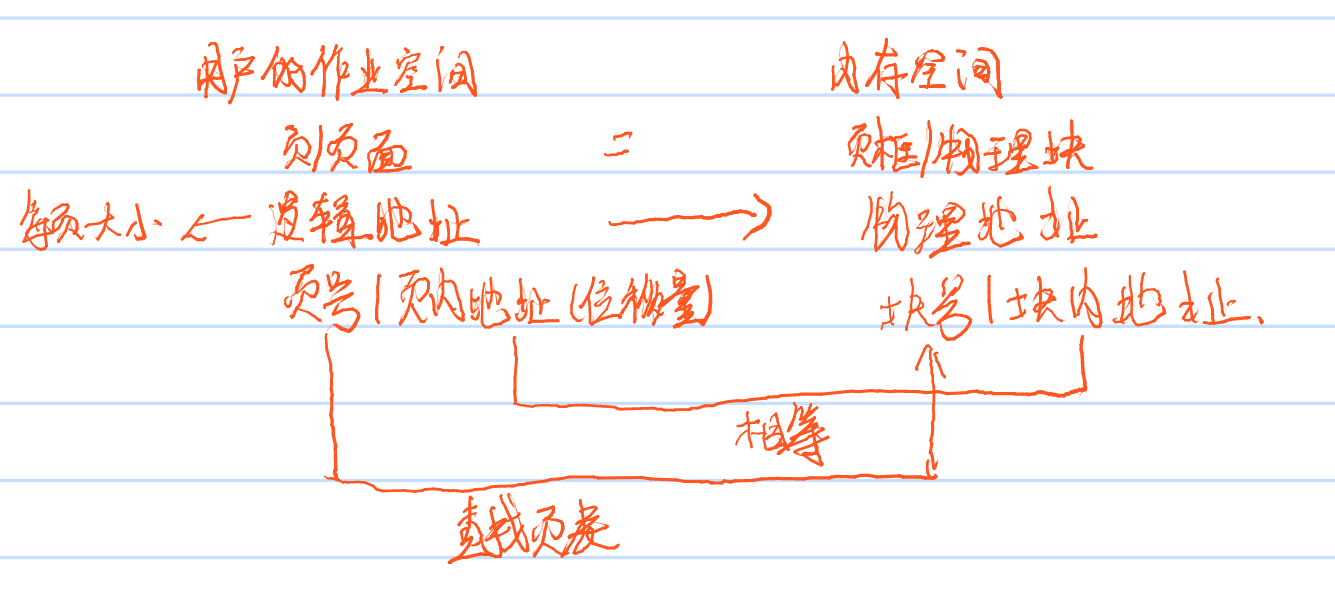 用户的作业空间 内存空间
页/页面 = 页框/物理块
每页大小 ← 逻辑地址 → 物理地址
页号|页内地址(位移量) 块号|块内地址.
相等
查找页表